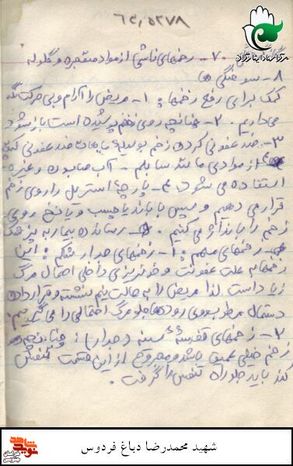 ۷- زخمهای ناشی از مواد منفجره و گلوله
۸- سوختگی ها
کمک برای رفع زخمها: ۱- مریض را آرام و بی حرکت نگه
می داریم. ۲- چنانچه روی زخم پوشیده است باز شود
۳- ضد عفونی کردن زخم بوسیله مایعات ضد عفونی کننده
از موادی مانند ساولن - آب صابون و غیره
استفاده می شود. ۴- پارچه استریل را روی زخم
قرار می دهیم و سپس با باند یا چسب و یا نخ روی
زخم را باند آژ می کنیم. رساندن بیمار به پزشک
زخمهای مهم: ۱- زخمهای جدار شکم: این
زخمها به علت عفونت و خونریزی داخلی احتمال مرگ
زیاد است لذا مریض را به حالت نیم نشسته قرار داده
دستمال مرطوب روی روده ها جلو مرگ احتمالی را می گیریم.
۲- زخمهای قفسه سینه و جدار: چنانچه
زخم خیلی عمیق باشد و مجروح از این قسمت تنفس
کند باید جلو راه تنفس را گرفت.
شهید محمدرضا دباغ فردوس